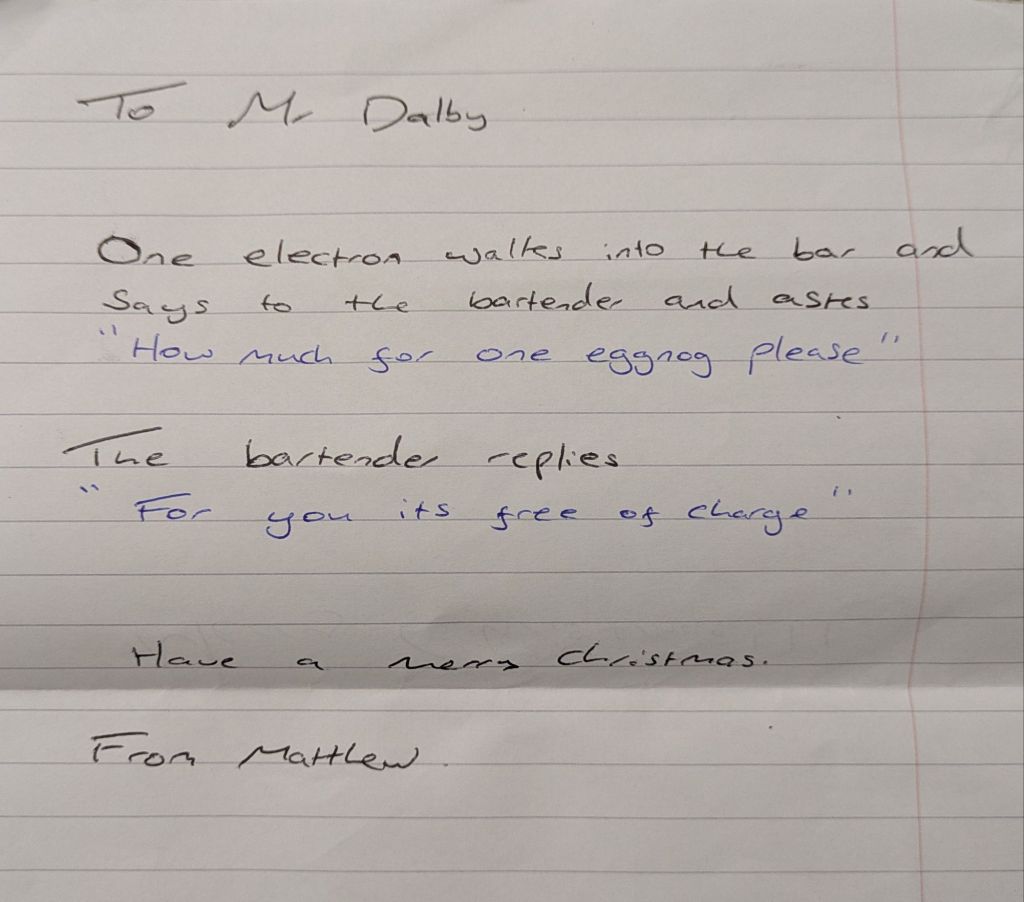 To Mr Dalby
One electron walks into the bar and
Says to the bartender and askes
"How much for one eggnog please"
The bartender replies
"For you its free of charge"
Have a merry christmas.
From Matthew.